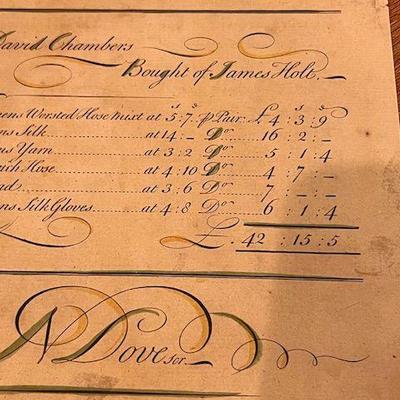 David Chambers
Bought of James Holt,
ens Worsted Hose mixt at 5:7. p Pair. £ 4:3:9
ns Silk at 14:— Do 16:2:—
ns Yarn at 3:2 Do 5:1:4
ich Hose at 4:10 Do 4:7:—
ad at 3:6 Do 7:—:—
ns Silk Gloves at 4:8 Do 6:1:4
£. 42:15:5
N Dove scr.